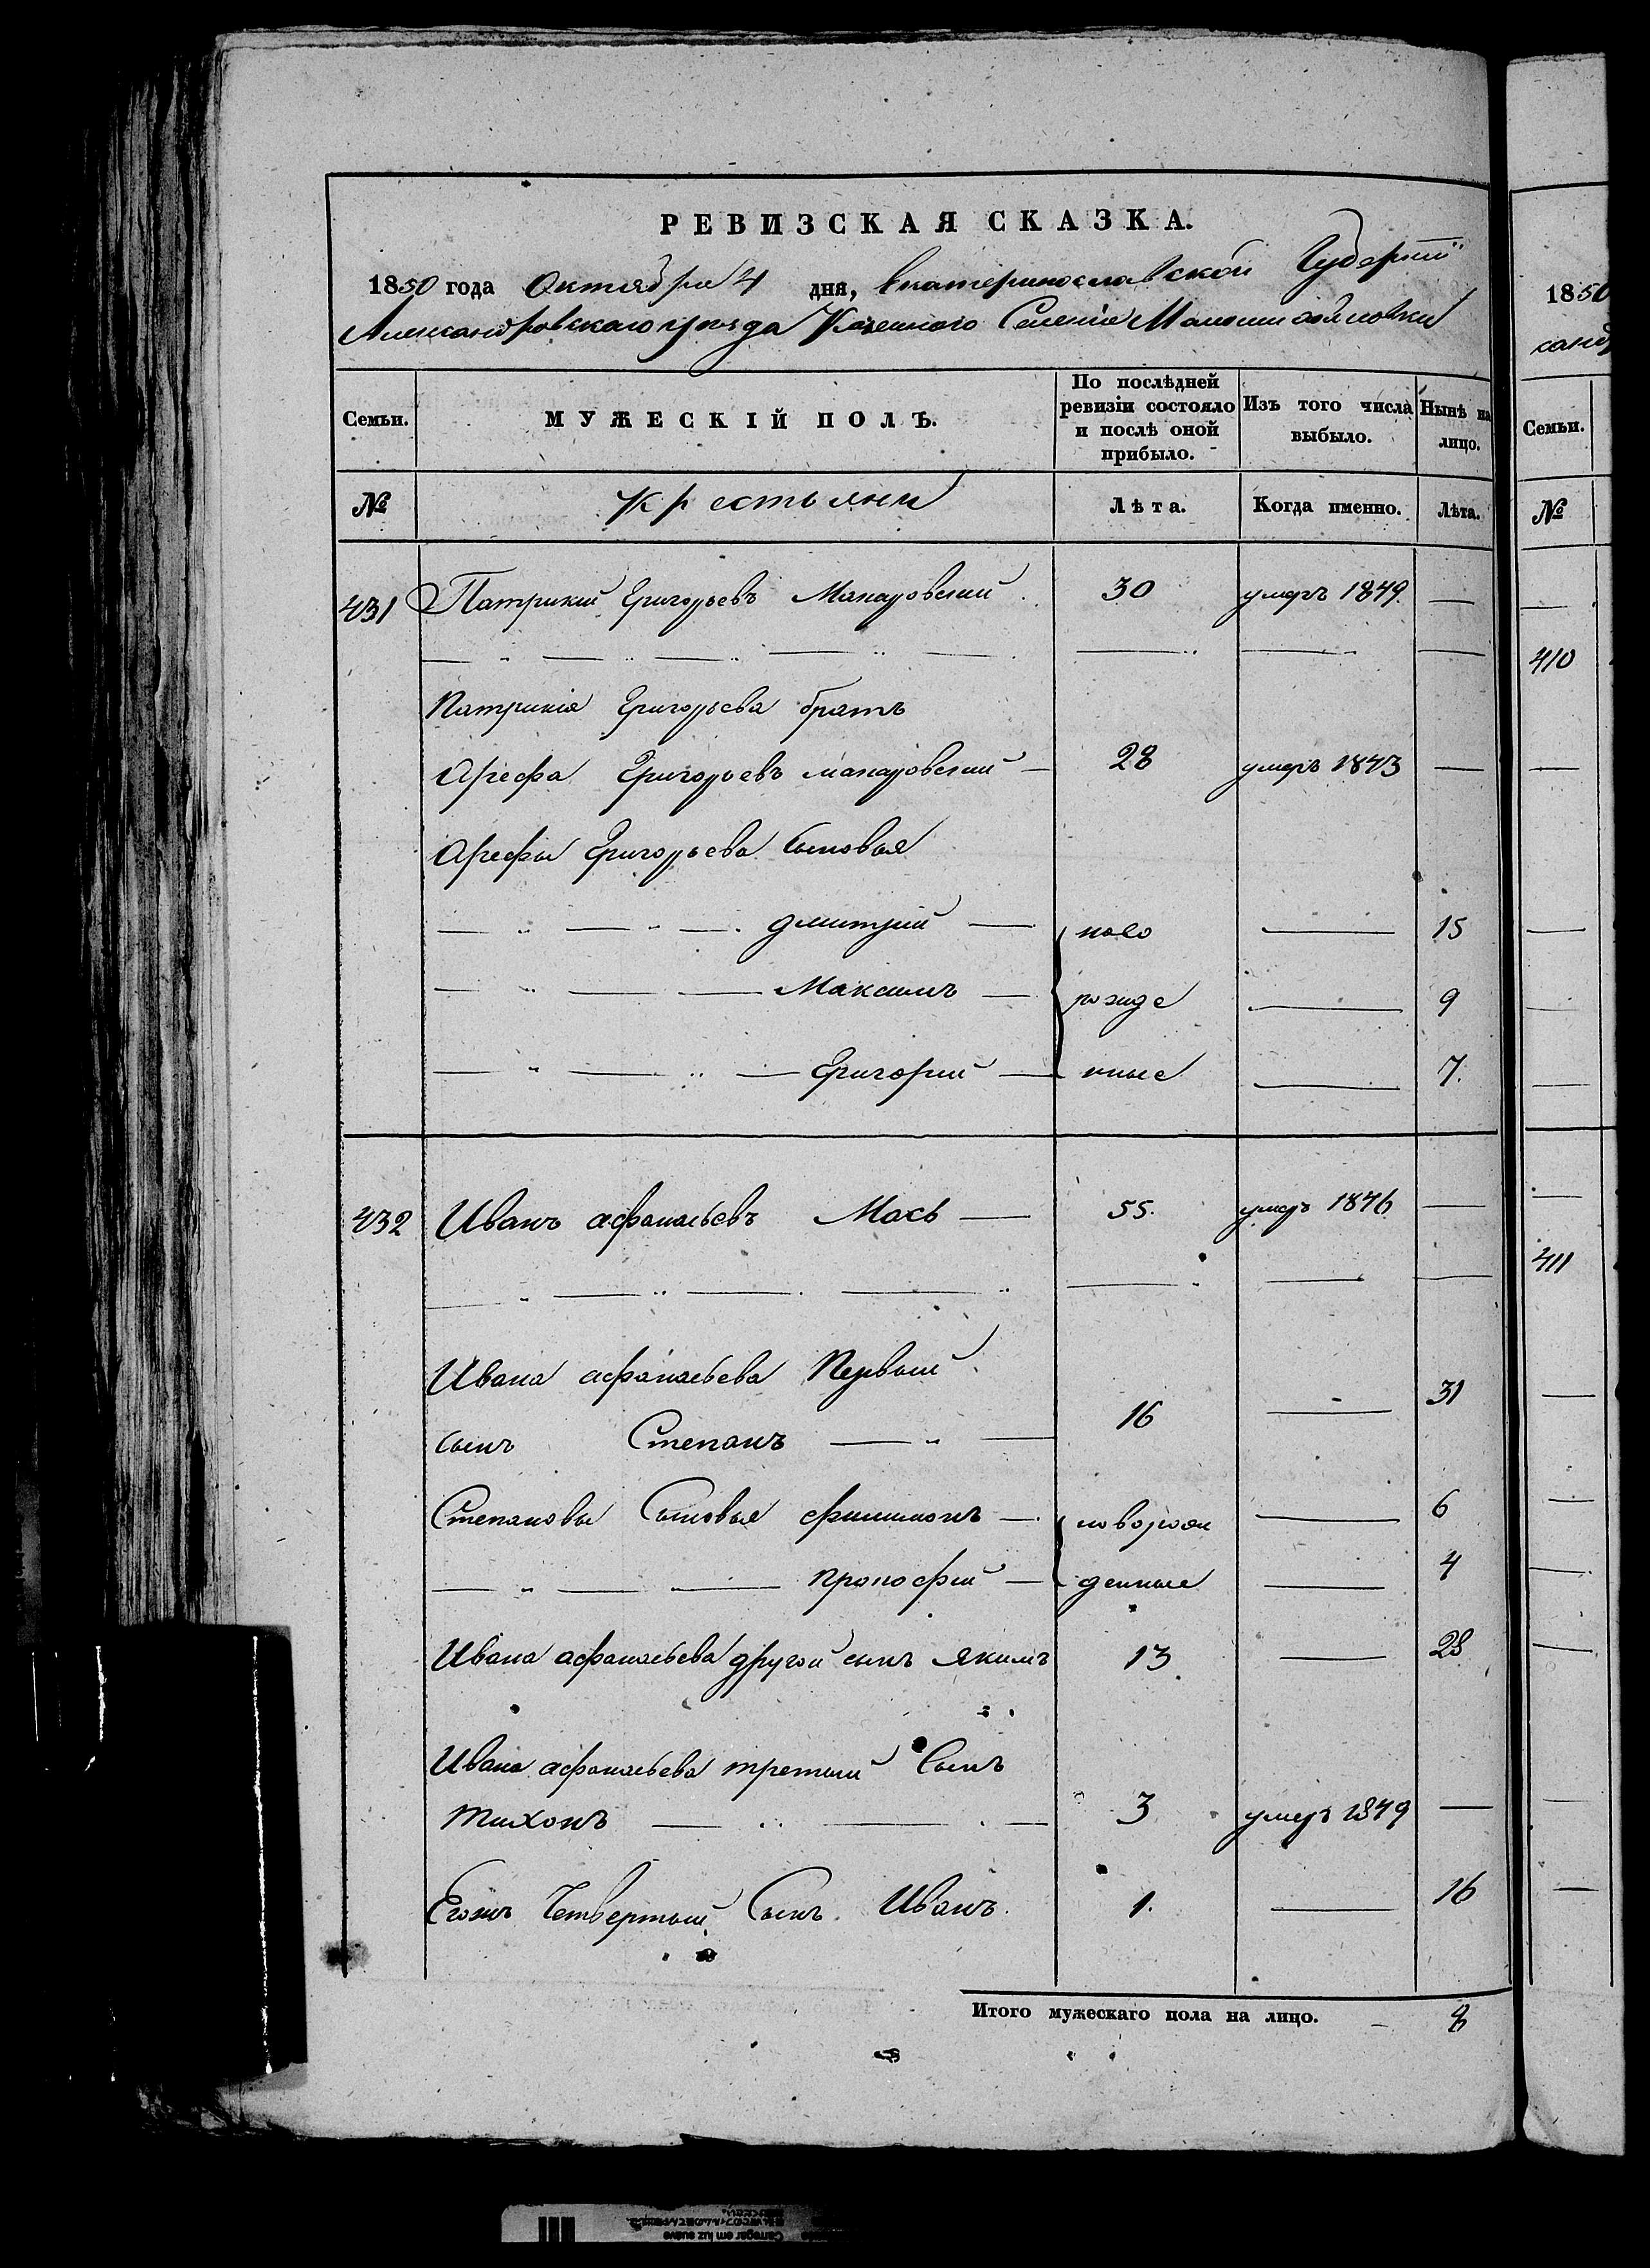 РЕВИЗСКАЯ СКАЗКА.
1850 года Октября 4 дня, Екатеринославской Губернiи
Александровскаго уезда Казенного Селенiя Маломихайловки
Семьи. МУЖЕСКІЙ ПОЛЪ. По послѣдней ревизіи состояло и послѣ оной прибыло. Изъ того числа выбыло. Нынѣ на лицо.
№ крестьяни Лѣта. Когда именно. Лѣта.
431 Патрикий Григорьевъ Макаровский 30 умеръ 1849 —
Патрикiя Григорьева братъ
Арефа Григорьевъ макаровский — 28 умеръ 1843 —
Арефы Григорьева Сыновья
дмитрий — ново — 15
Максимъ — рожде — 9
Григорий — нные — 7.
432 Иванъ афанасьевъ Мась — 55. умеръ 1846 —
Ивана афанасьева Первый
сынъ Степанъ — 16 — 31
Степановы Сыновья филимонъ — новорож — 6
прокофий — денные — 4
Ивана афанасьева другой сынъ Якимъ 13 — 28
Ивана афанасьева третьий Сынъ
тихонъ — 3 умеръ 1849 —
Егожъ Четвертый Сынъ Иванъ. 1. — 16
Итого мужескаго пола на лицо. — 8
1850
санд
Семьи.
№
410
411